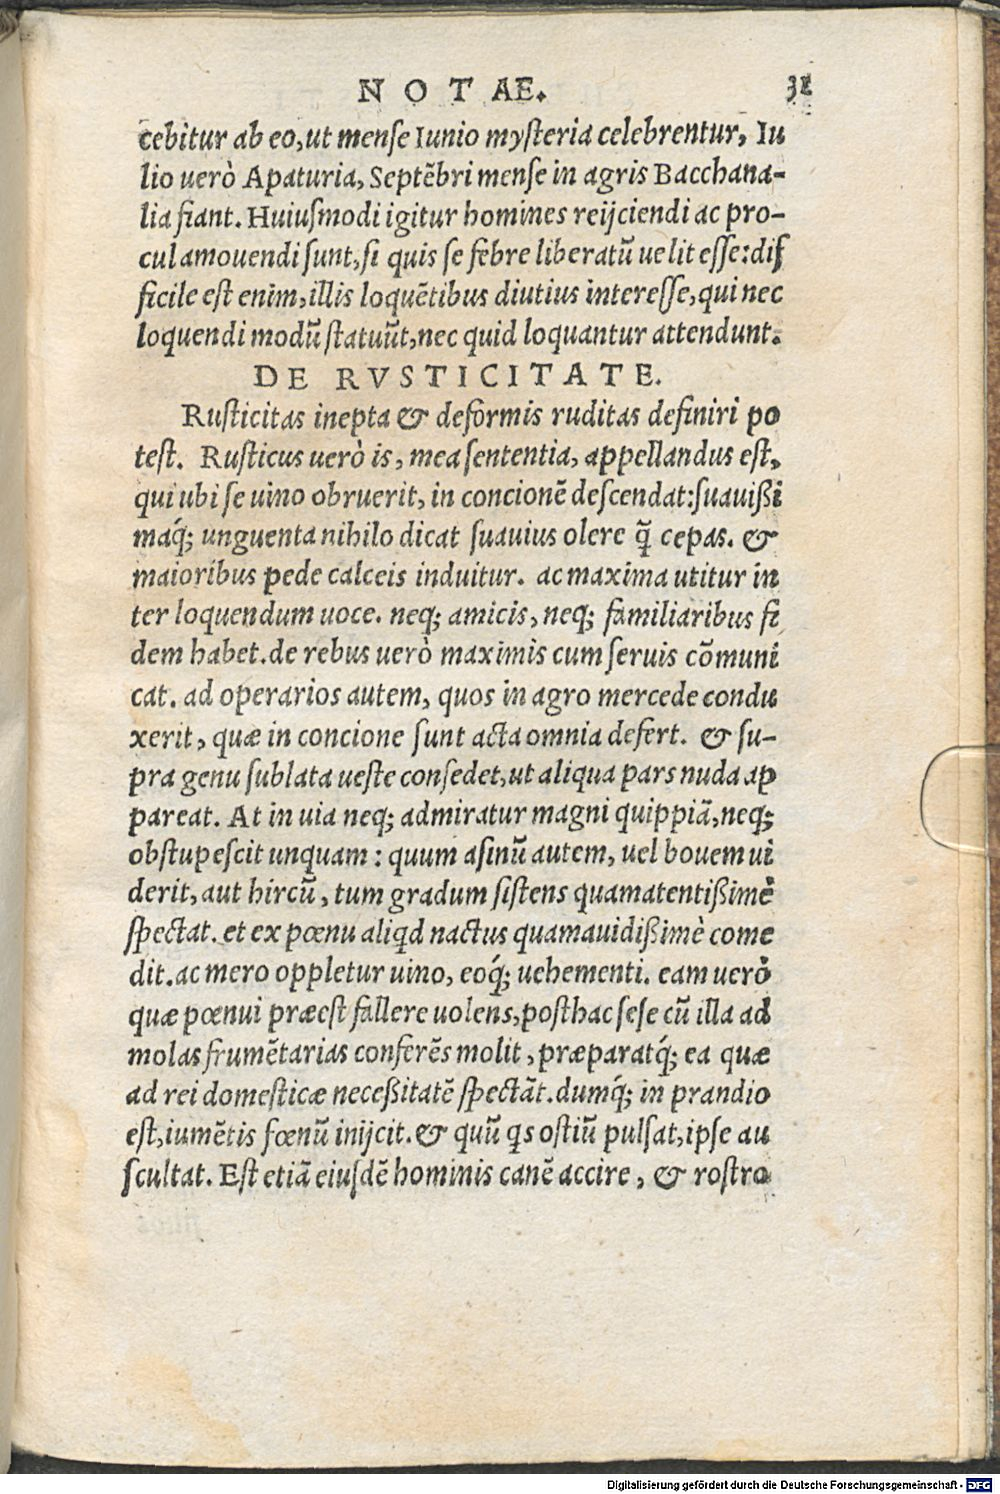 NOTAE. 31
cebitur ab eo, ut mense Iunio mysteria celebrentur, Iu
lio uerò Apaturia, Septẽbri mense in agris Bacchana-
lia fiant. Huiusmodi igitur homines reijciendi ac pro-
cul amouendi sunt, si quis se febre liberatũ uelit esse: dif
ficile est enim, illis loquẽtibus diutius interesse, qui nec
loquendi modũ statuũt, nec quid loquantur attendunt.
DE RVSTICITATE.
Rusticitas inepta & deformis ruditas definiri po
test. Rusticus uerò is, mea sententia, appellandus est,
qui ubi se uino obruerit, in concionẽ descendat: suauißi
maq́; unguenta nihilo dicat suauius olere q̃ cepas. &
maioribus pede calceis induitur. ac maxima utitur in
ter loquendum uoce. neq; amicis, neq; familiaribus fi
dem habet. de rebus uerò maximis cum seruis cõmuni
cat. ad operarios autem, quos in agro mercede condu
xerit, quæ in concione sunt acta omnia defert. & su-
pra genu sublata ueste consedet, ut aliqua pars nuda ap
pareat. At in uia neq; admiratur magni quippiã, neq;
obstupescit unquam: quum asinũ autem, uel bouem ui
derit, aut hircũ, tum gradum sistens quamatentißimè
spectat. et ex pœnu aliqd nactus quamauidißimè come
dit. ac mero oppletur uino, eoq́; uehementi. eam uerò
quæ pœnui præest fallere uolens, posthac sese cũ illa ad
molas frumẽtarias conferẽs molit, præparatq́; ea quæ
ad rei domesticæ neceßitatẽ spectãt. dumq́; in prandio
est, iumẽtis fœnũ inijcit. & quũ qs ostiũ pulsat, ipse au
scultat. Est etiã eiusdẽ hominis canẽ accire, & rostro
Digitalisierung gefördert durch die Deutsche Forschungsgemeinschaft - DFG